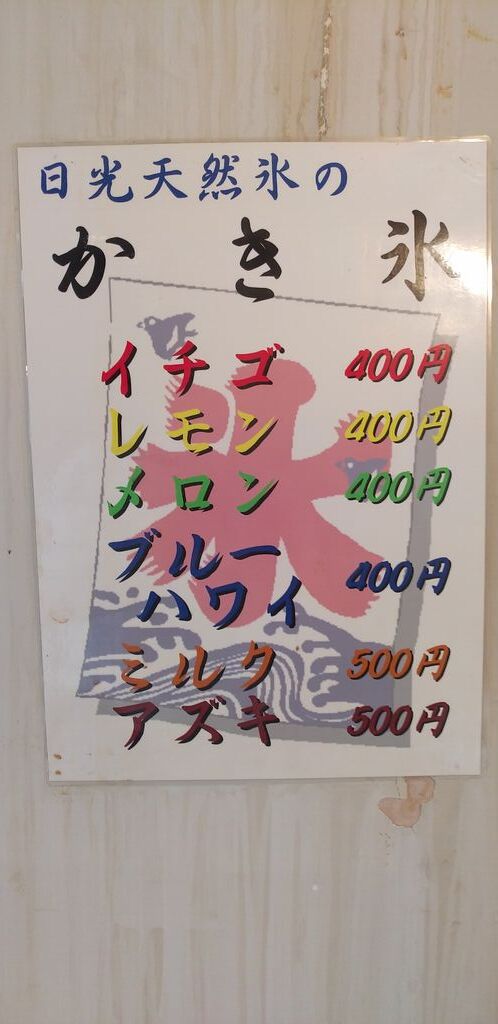 日光天然氷の
かき氷
イチゴ 400円
レモン 400円
メロン 400円
ブルー
ハワイ 400円
ミルク 500円
アズキ 500円
氷